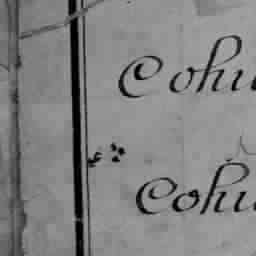 Cohu
Cohu